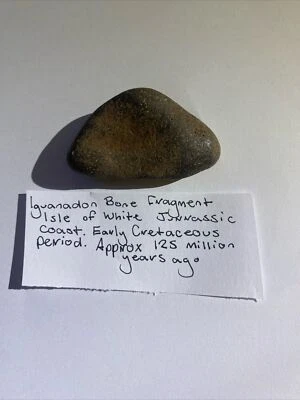 Iguanadon Bone Fragment
Isle of White Jurrassic
Coast. Early Cretaceous
Period. Approx 125 million
years ago